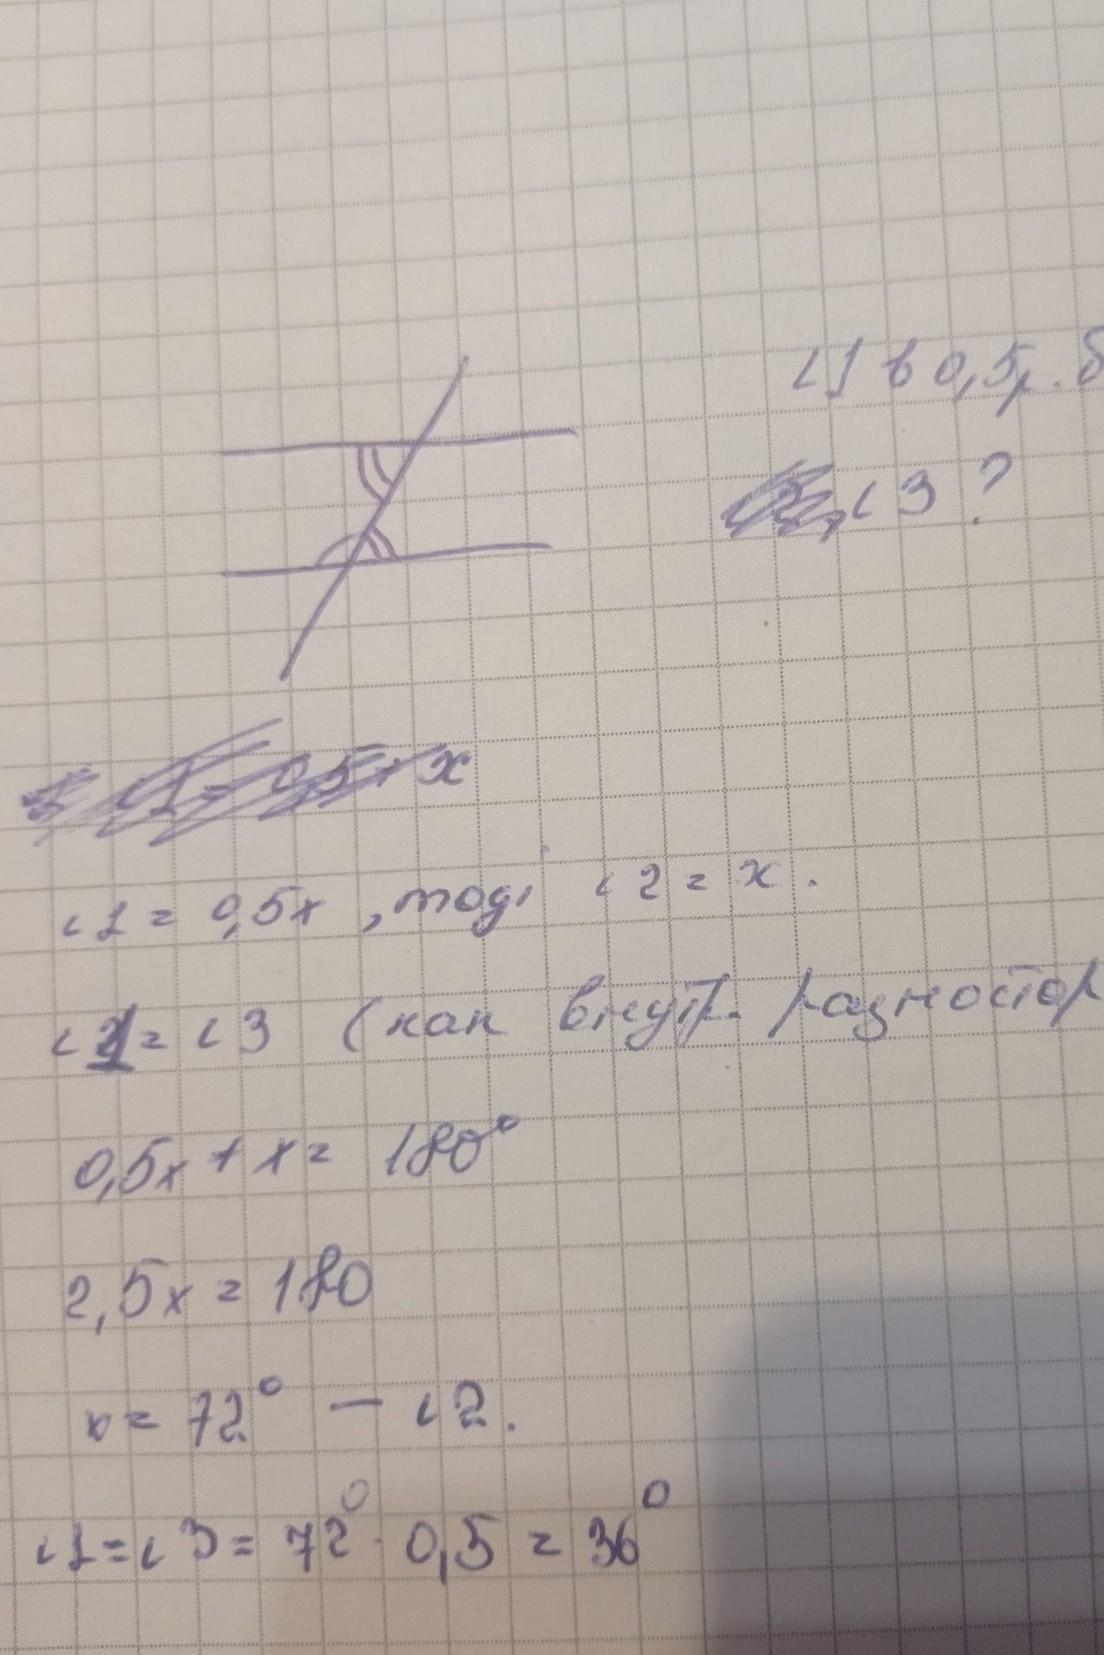 ∠1 в 0,5 р. б
∠3 ?
∠1 = 0,5x , тоді ∠2 = x .
∠1 = ∠3 (как внутр. разностор
0,5x + x = 180°
2,5x = 180
x = 72° — ∠2.
∠1 = ∠3 = 72° · 0,5 = 36°